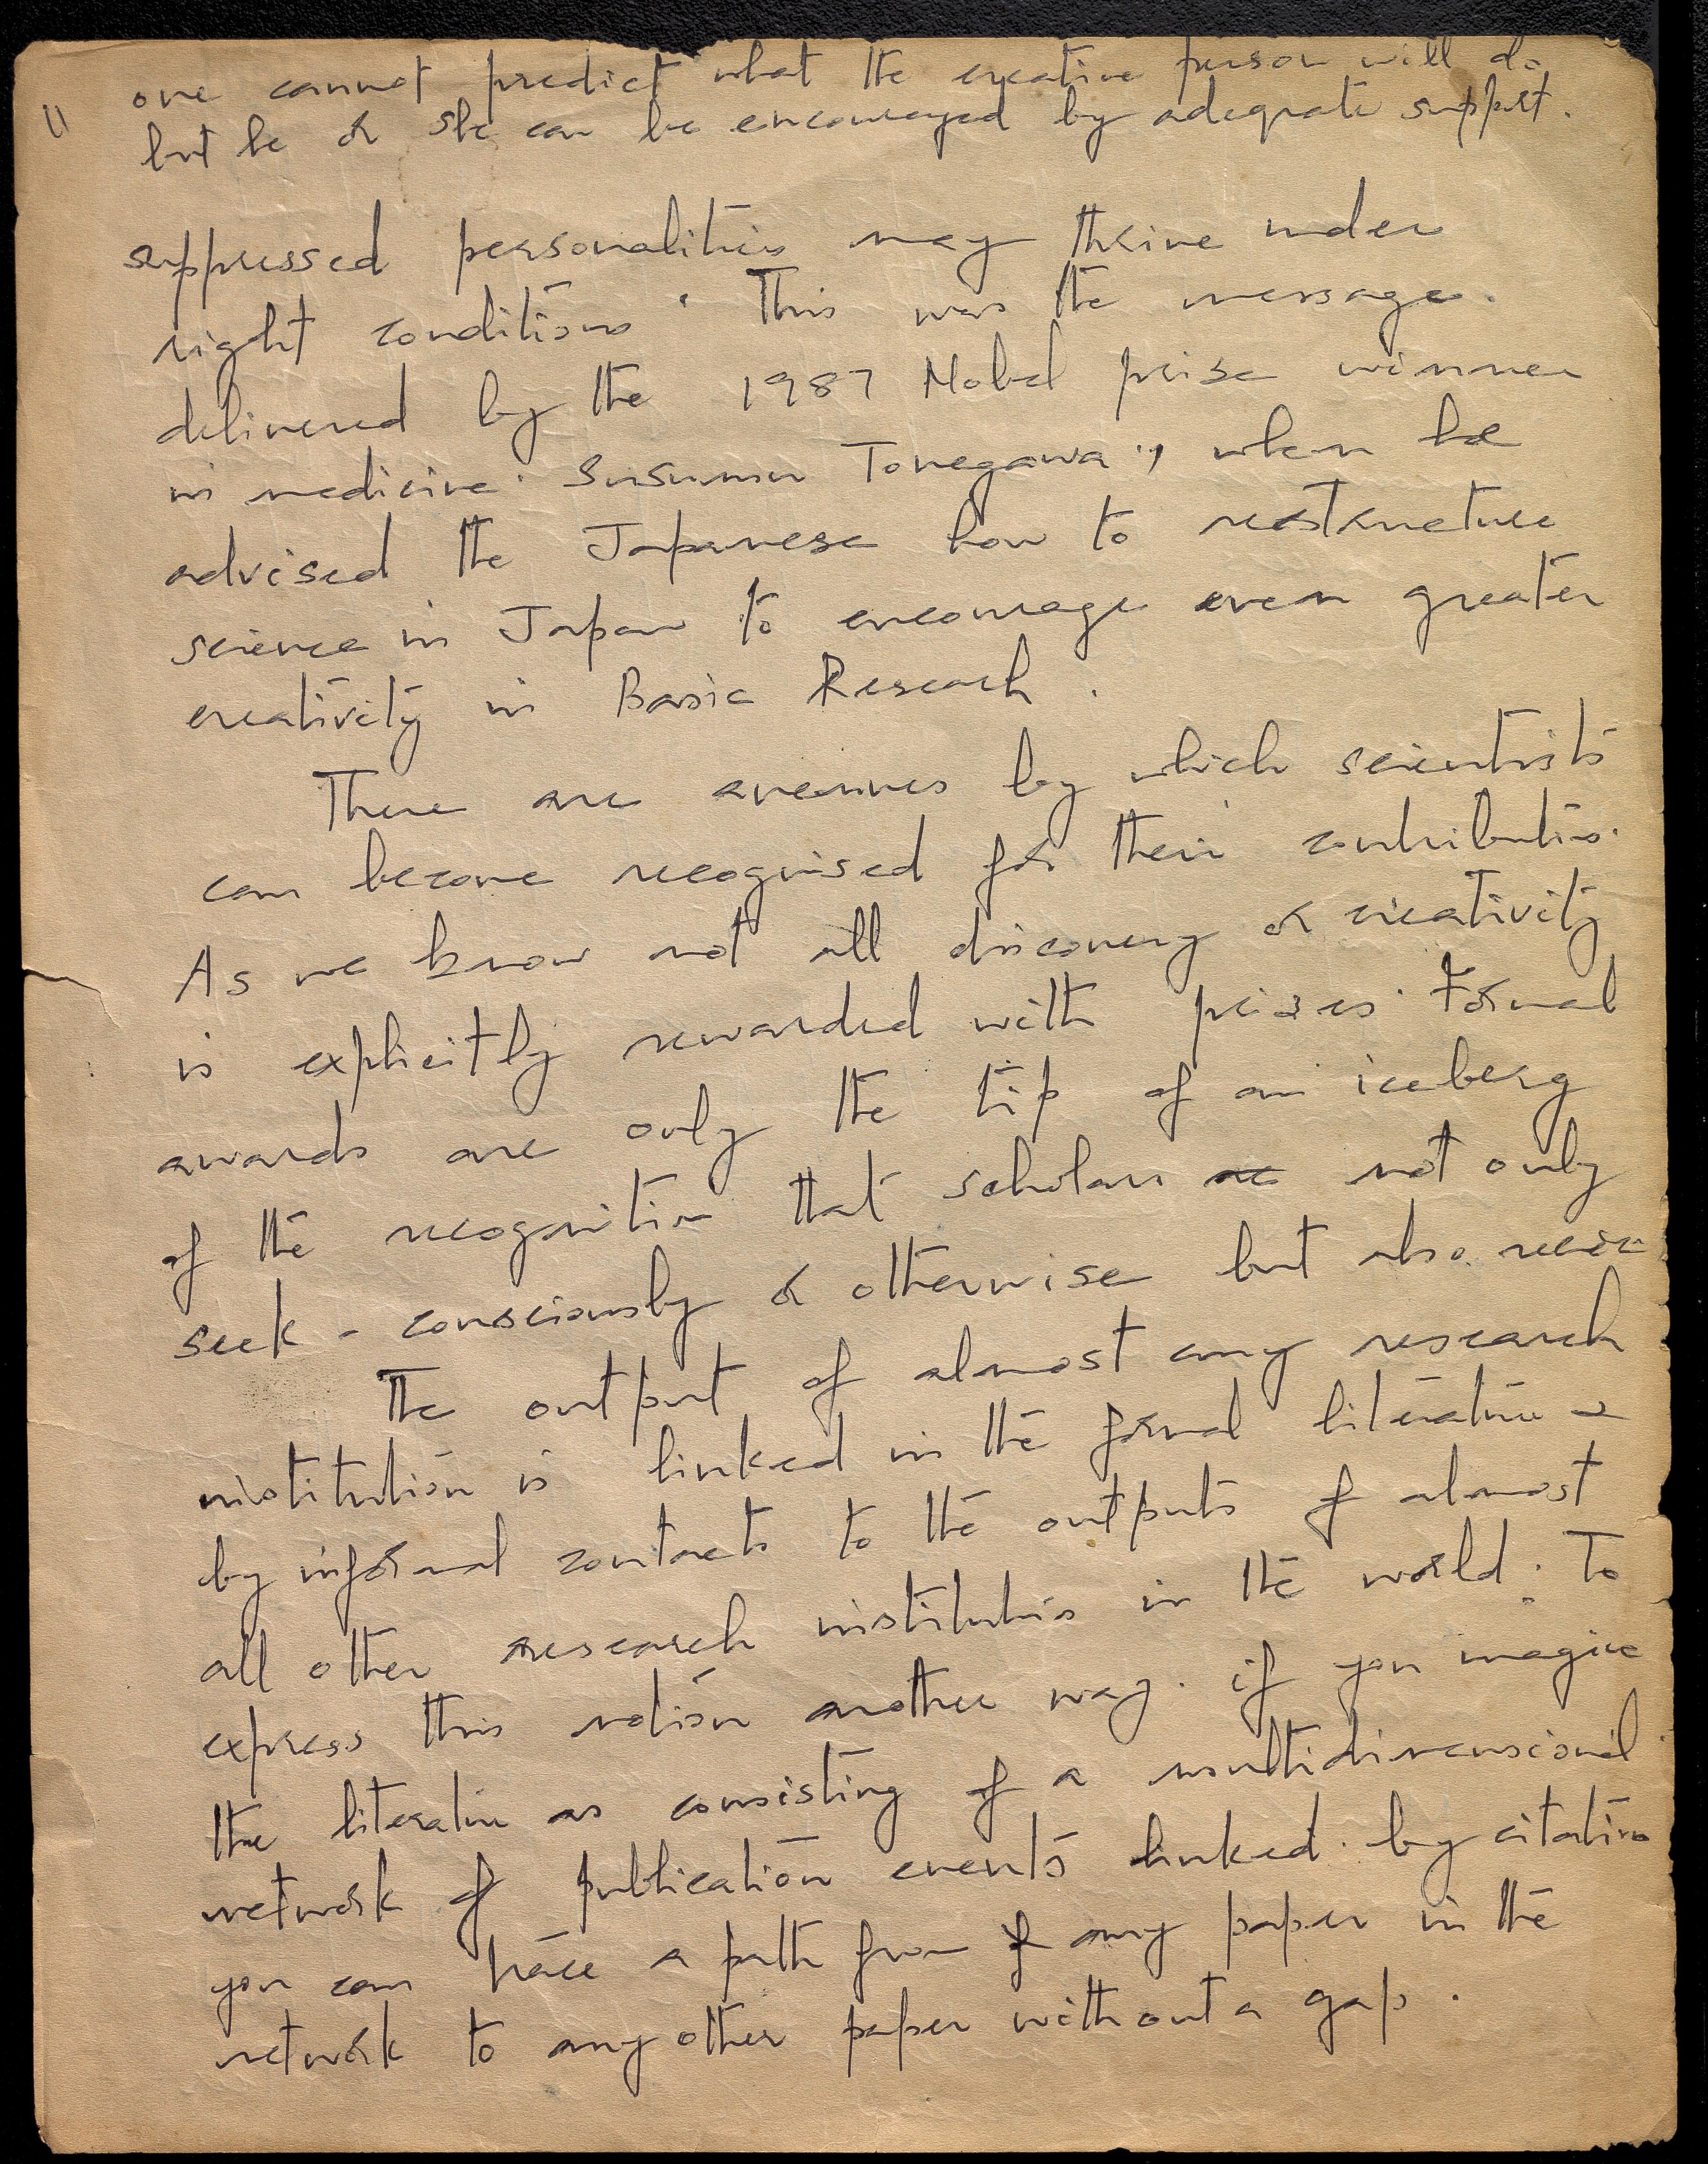 one cannot predict what the creative person will do
" but he or she can be encouraged by adequate support.
suppressed personalities may thrive under
right conditions. This was the message.
delivered by the 1987 Nobel prise winner
in medicine. Susumu Tonegawa, when he
advised the Japanese how to restructure
science in Japan to encourage even greater
creativity in Basic Research.
There are avenues by which scientists
can become recognised for their contribution.
As we know not all discovery or creativity
is explicitly rewarded with prizes. Formal
awards are only the tip of an iceberg
of the recognition that scholars not only
seek - consciously or otherwise but also
The output of almost any research
institution is linked in the formal literature &
by informal contacts to the outputs of almost
all other research institutions in the world. To
express this notion another way. if you imagine
the literature as consisting of a multidimensional
network of publication events linked by citation
you can trace a path from any paper in the
network to any other paper without a gap.